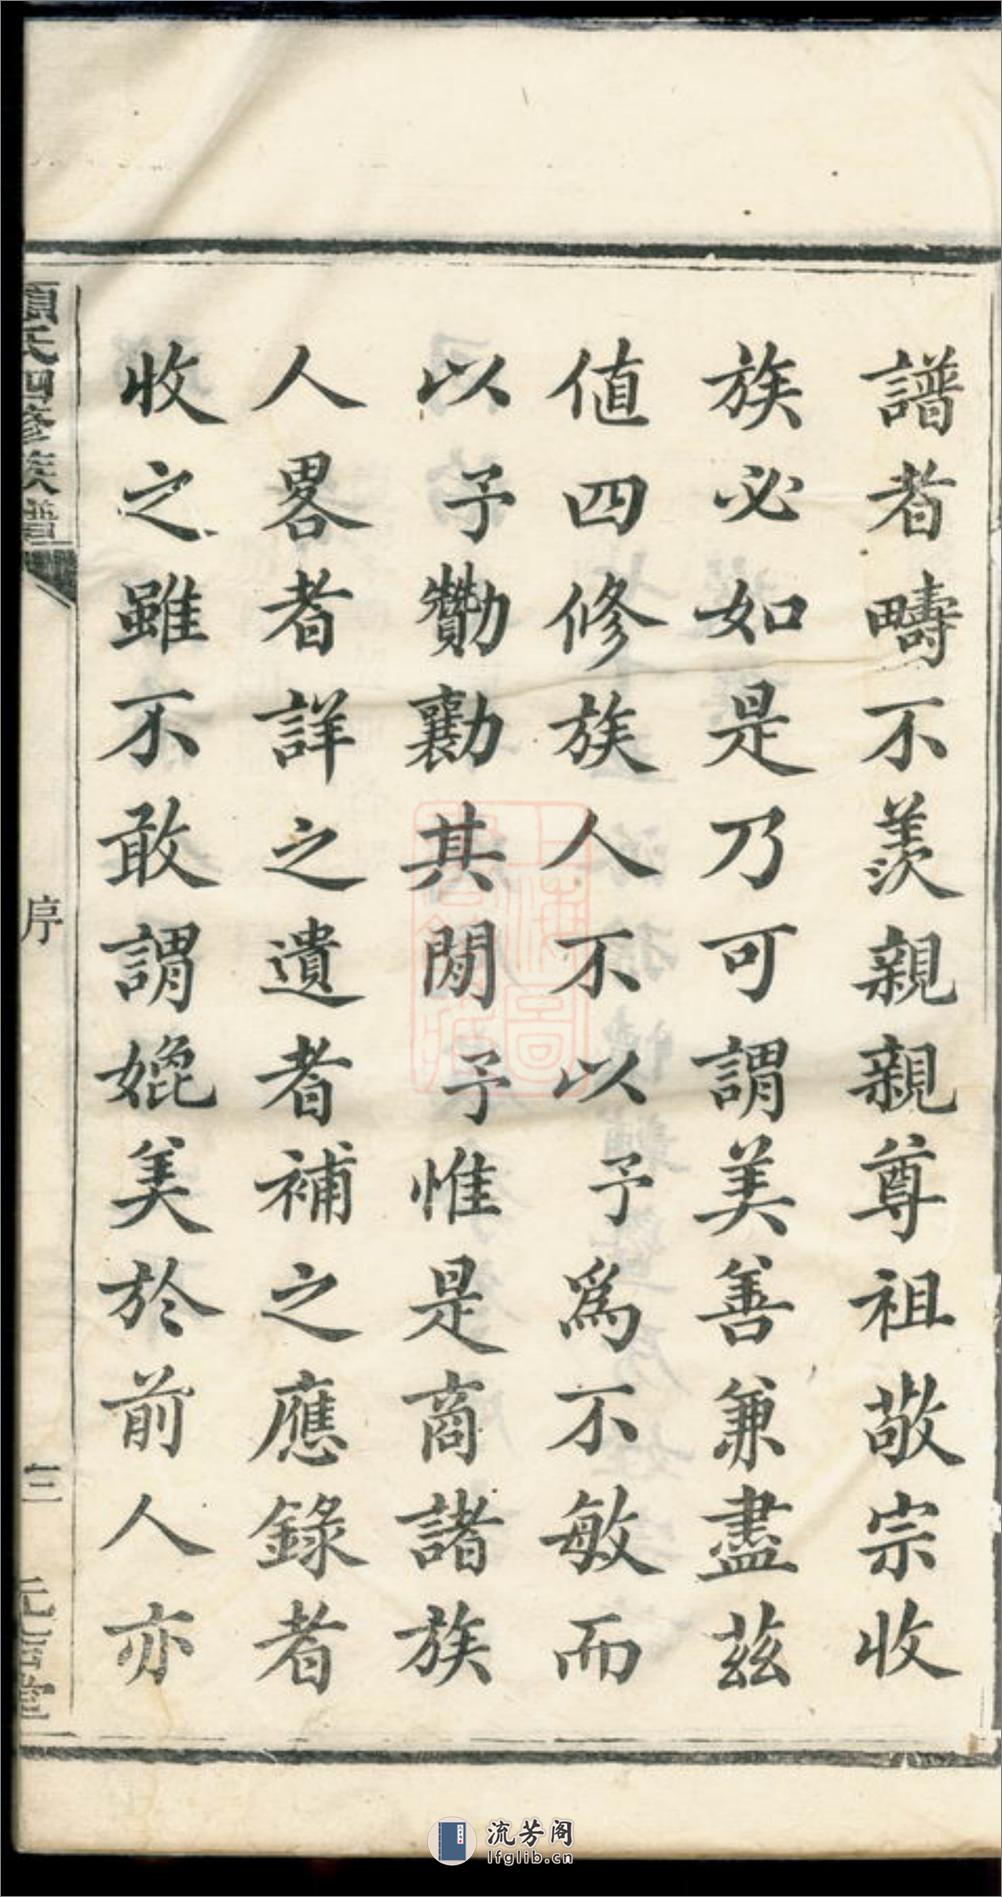 譜者疇不羨親親尊祖敬宗收
族必如是乃可謂美善兼盡茲
值四修族人不以予為不敏而
以予勷勸其間予惟是商諸族
人畧者詳之遺者補之應錄者
收之雖不敢謂媲美於前人亦
氏四修族譜
序
三
流芳阁
lfglib.cn